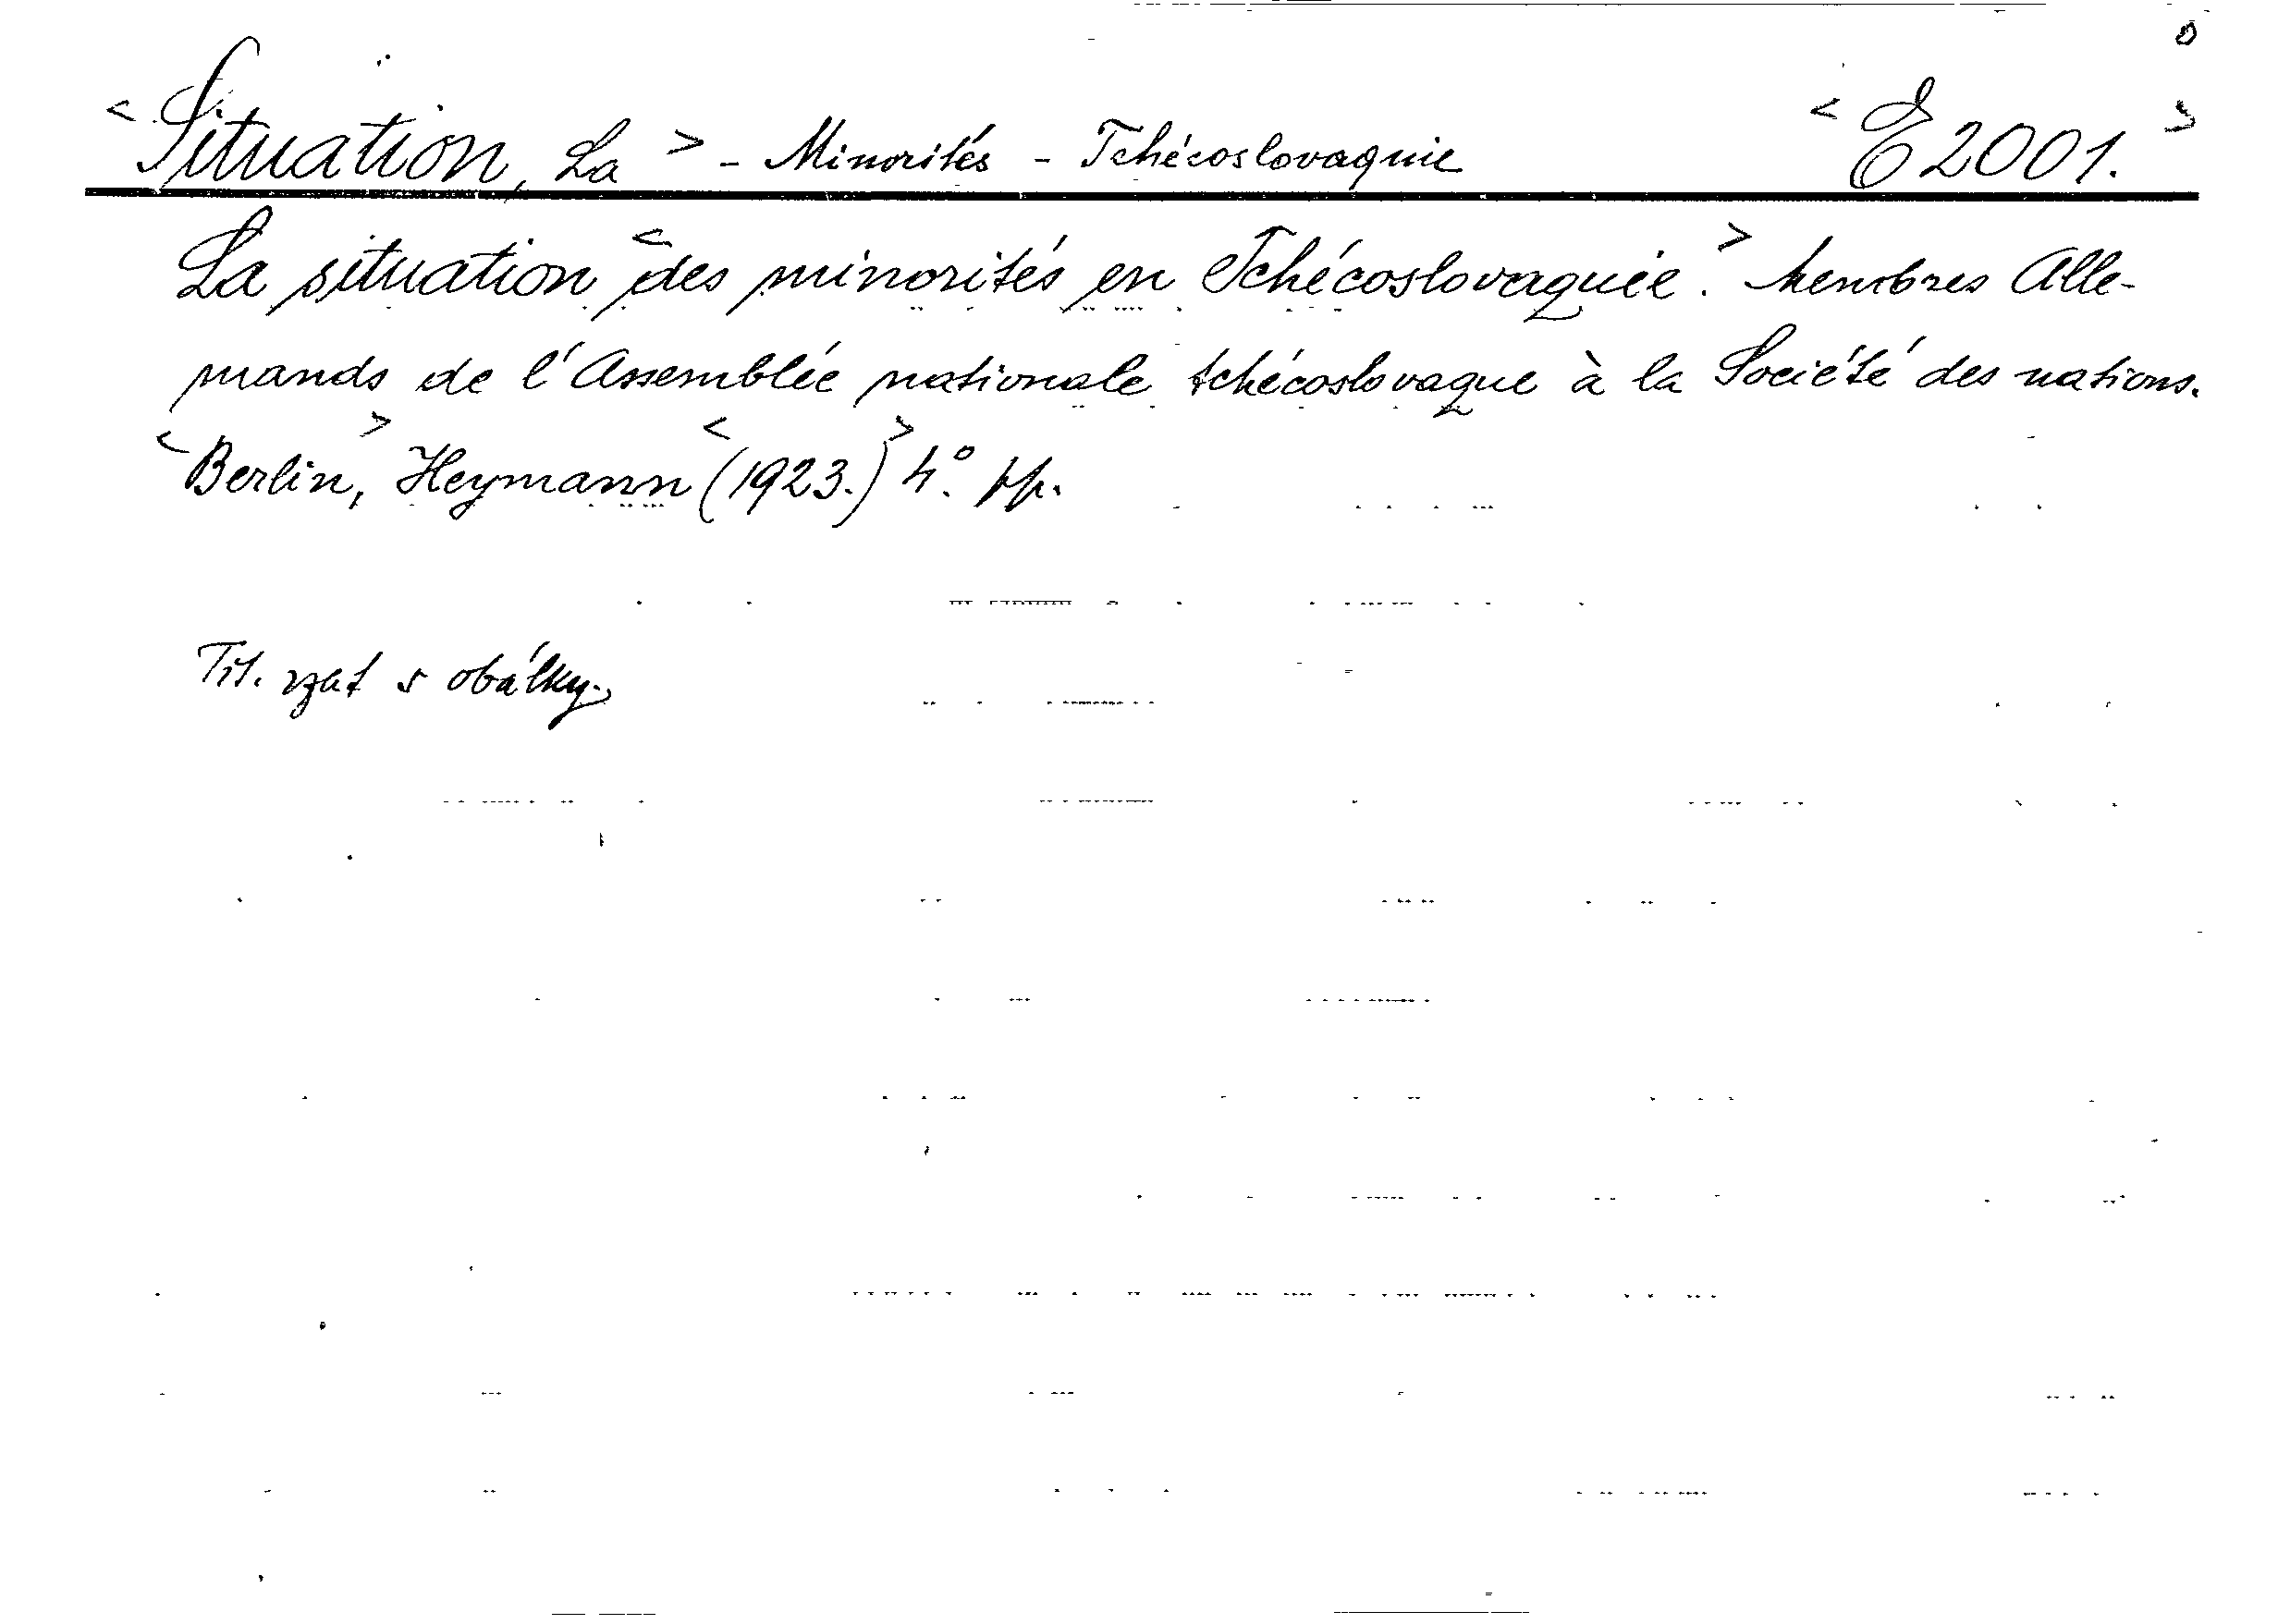 <Situation, La> - Minorités - Tchécoslovaquie <E 2001.>
La situation <des minorités en Tchécoslovaquie.> Membres Alle-
mands de l'Assemblée nationale tchécoslovaque à la Société des nations.
<Berlin,> Heymann <(1923.)> 4°.
Tit. vzat s obálky.